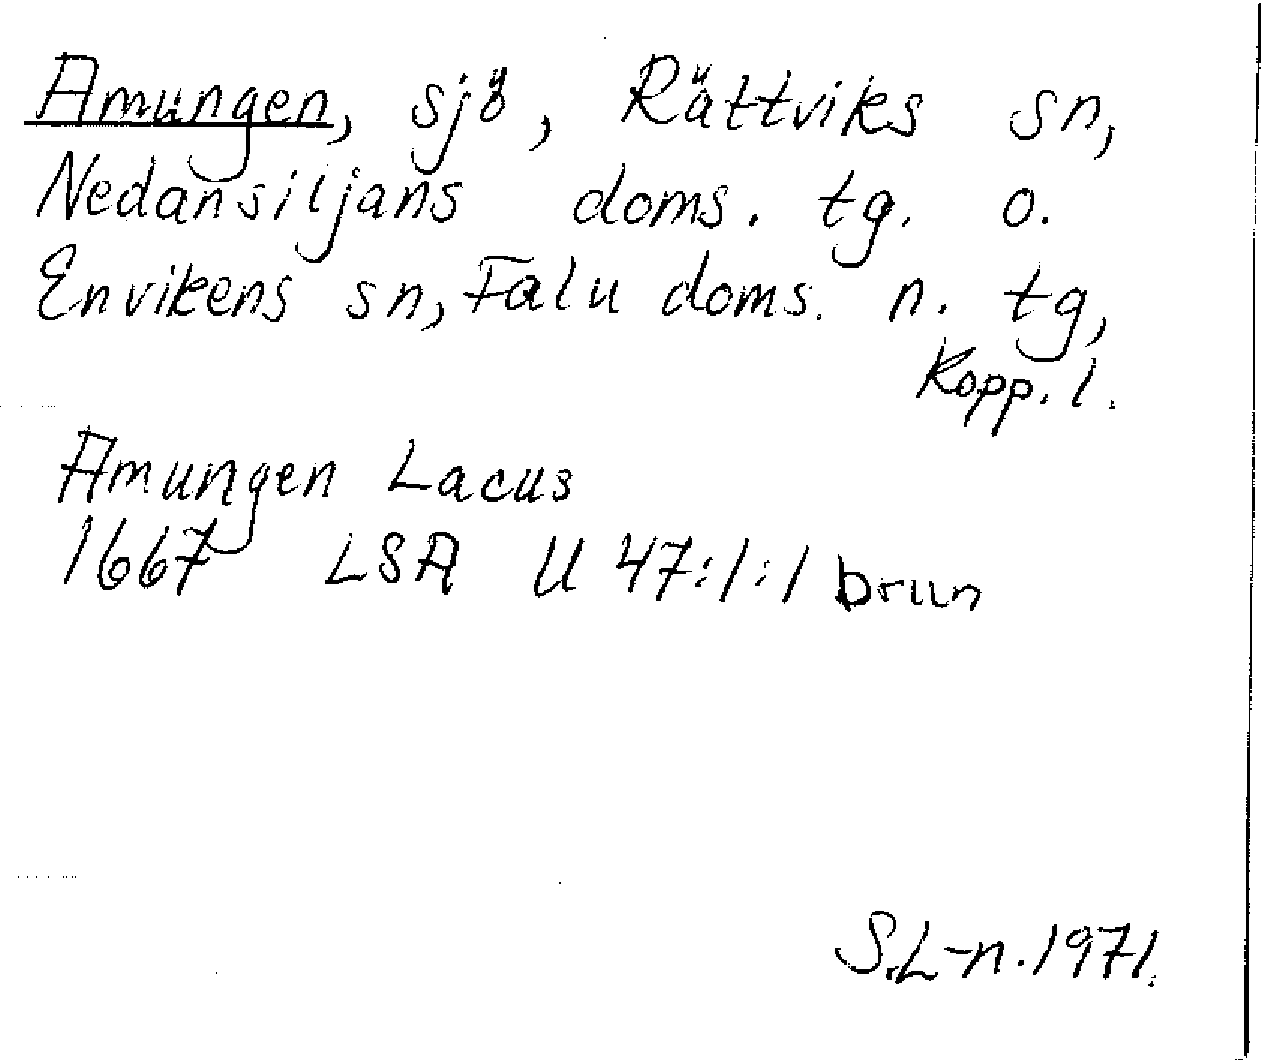 Amungen, sjö, Rättviks sn,
Nedansiljans doms. tg. o.
Envikens sn, Falu doms. n. tg,
Kopp. l.
Amungen Lacus
1667 LSA U 47:1:1 brun
S.L-n. 1971.